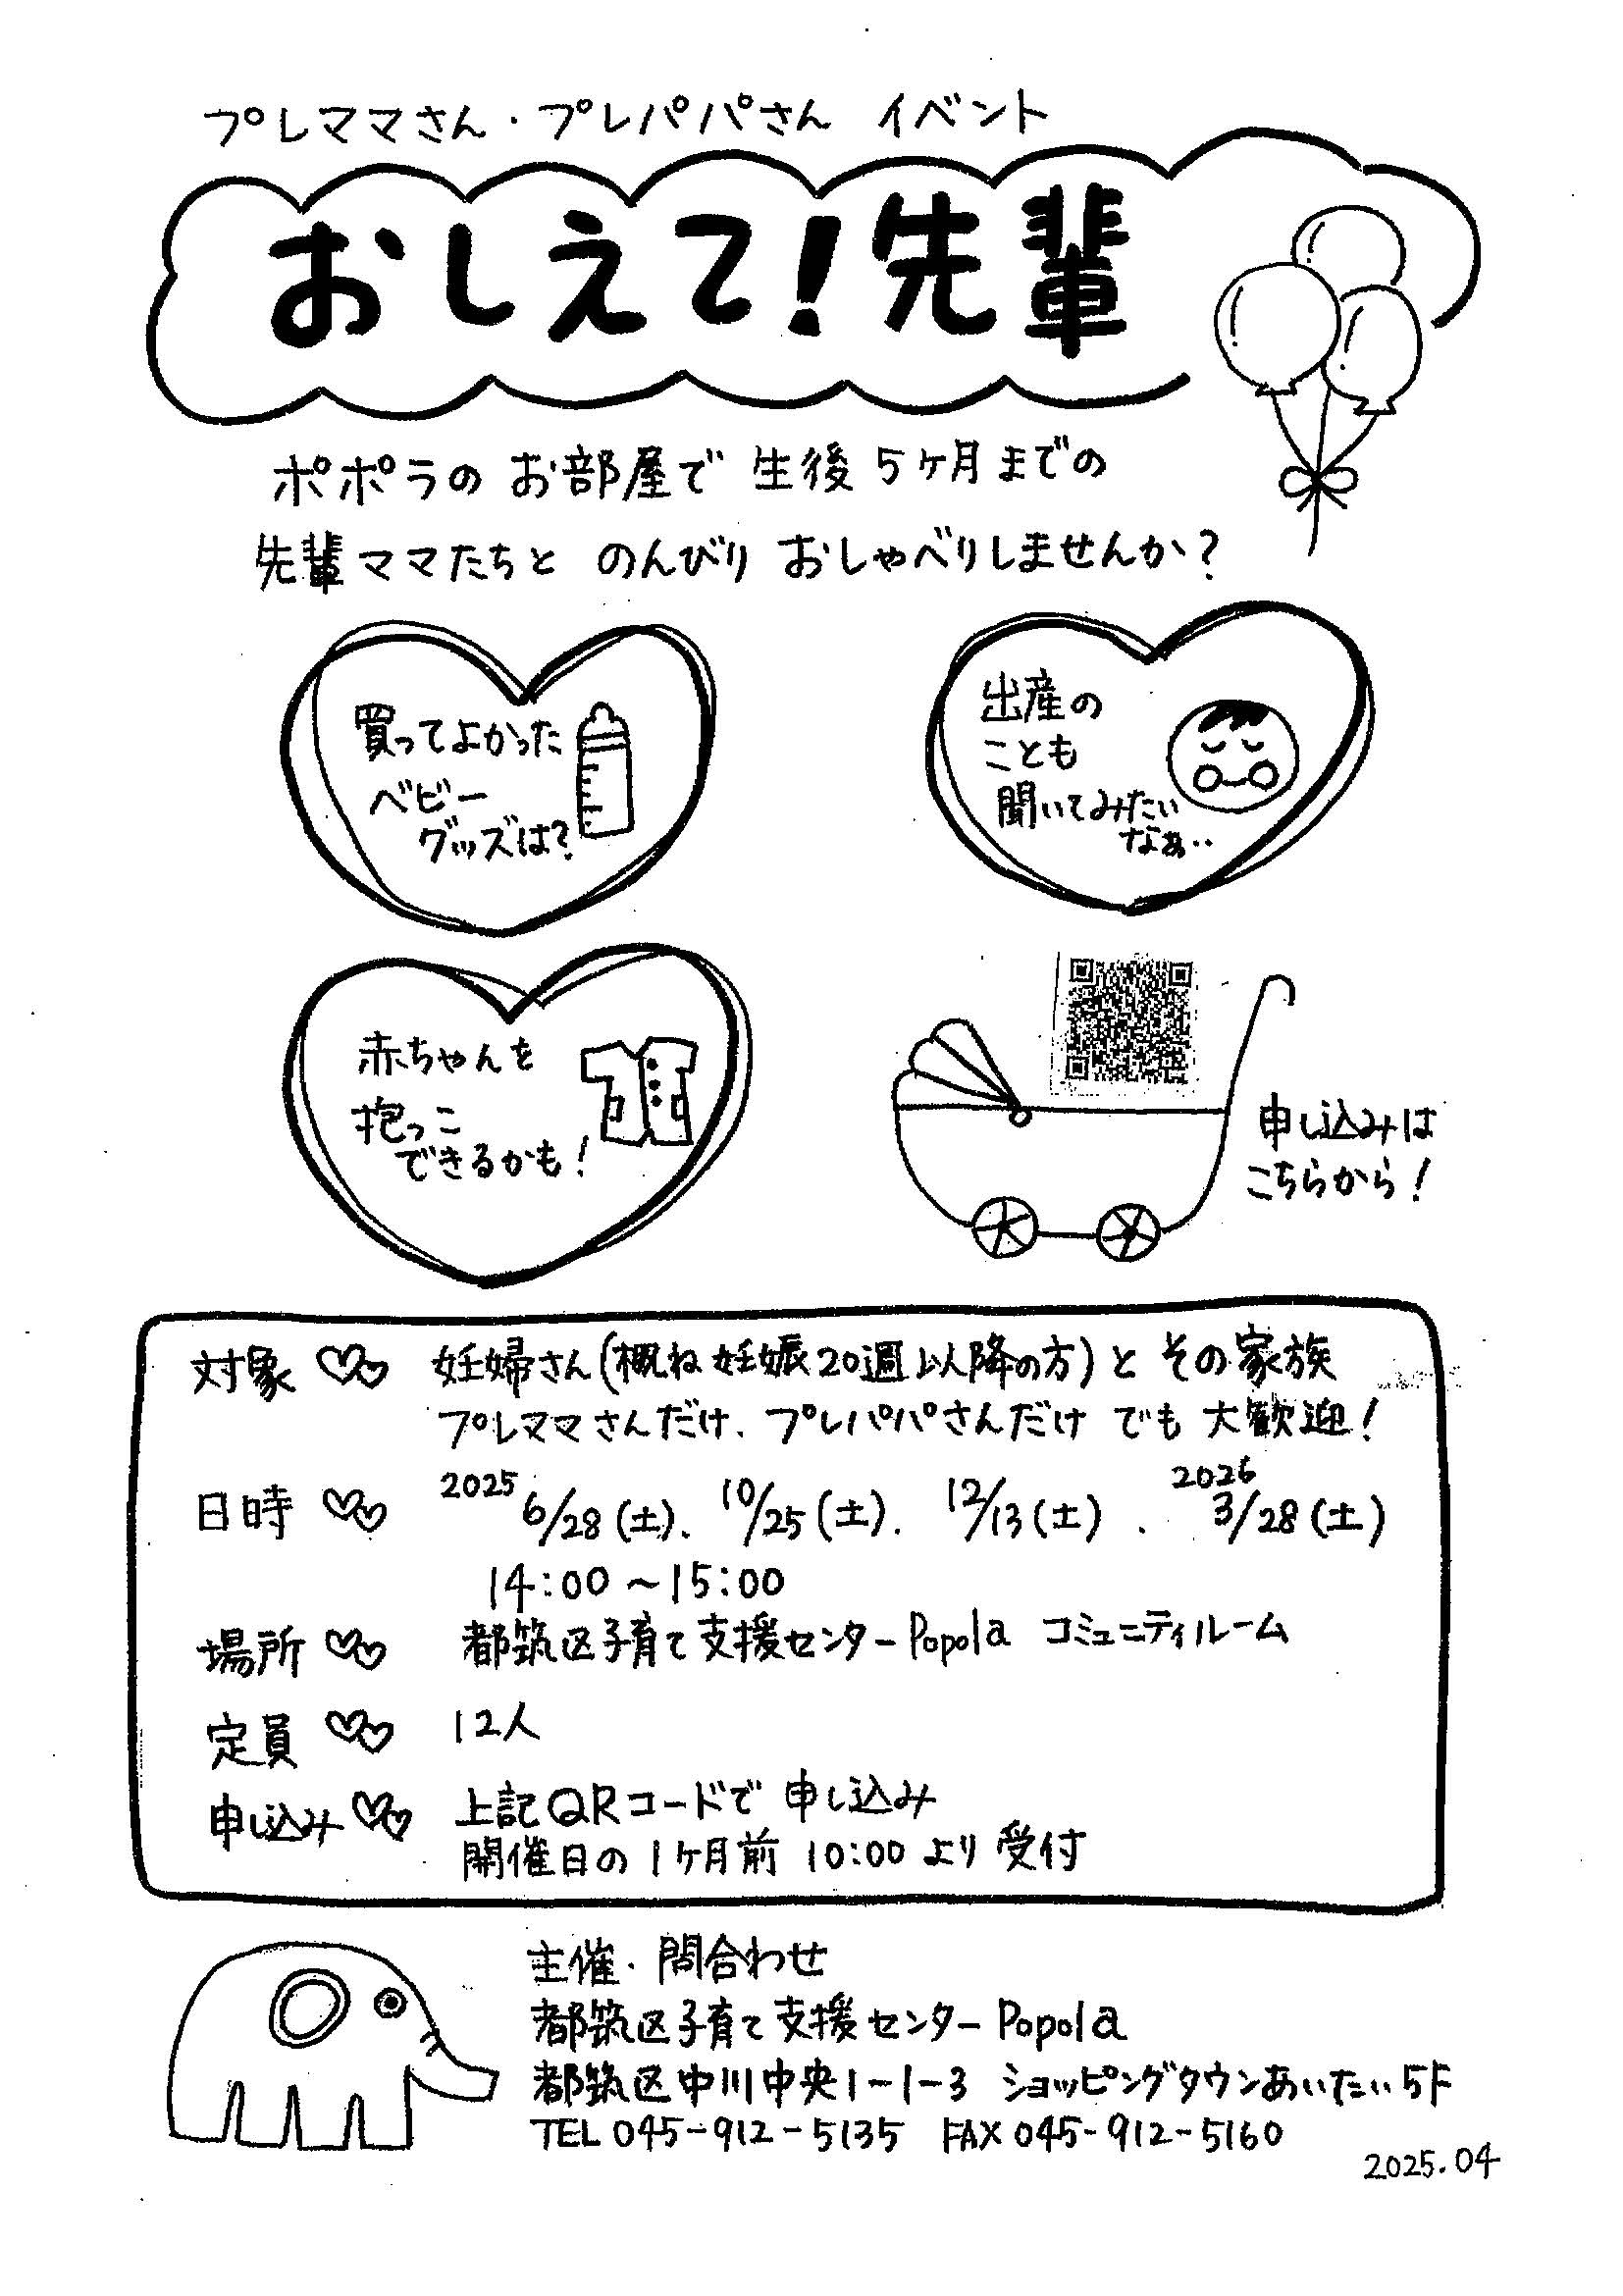 プレママさん・プレパパさん イベント
おしえて!先輩
ポポラの お部屋で 生後 5ヶ月までの
先輩ママたちと のんびり おしゃべりしませんか?
買ってよかった
ベビー
グッズは?
出産の
ことも
聞いてみたい
なぁ‥
赤ちゃんを
抱っこ
できるかも!
申し込みは
こちらから!
対象 妊婦さん(概ね 妊娠20週以降の方)と その家族
プレママさんだけ、プレパパさんだけ でも 大歓迎!
日時 2025 6/28(土)、10/25(土)、12/13(土)、2026 3/28(土)
14:00~15:00
場所 都筑区子育て支援センターPopola コミュニティルーム
定員 12人
申し込み 上記QRコードで 申し込み
開催日の 1ヶ月前 10:00より 受付
主催・問合わせ
都筑区子育て支援センターPopola
都筑区中川中央1-1-3 ショッピングタウンあいたい5F
TEL 045-912-5135 FAX 045-912-5160
2025.04